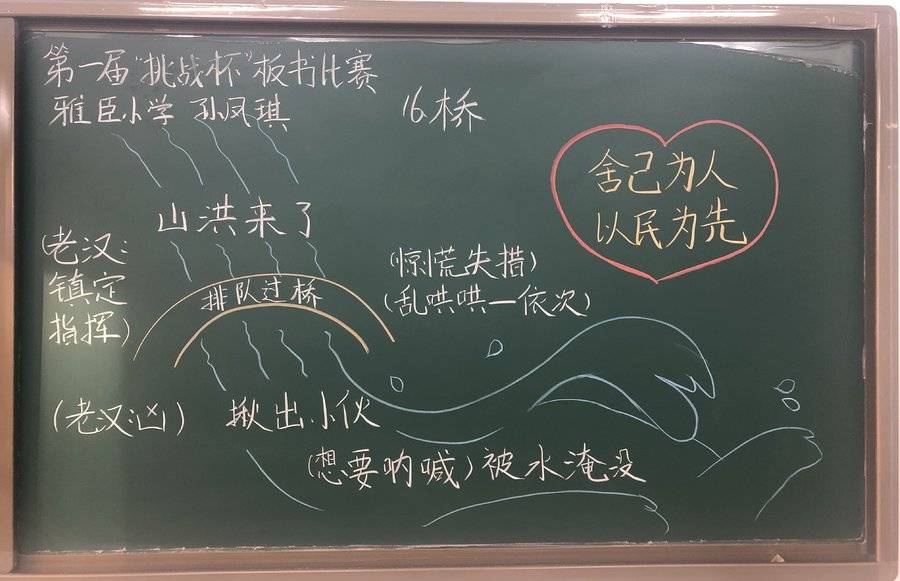 第一届"挑战杯"板书比赛
雅臣小学 孙凤琪
16桥
舍己为人
以民为先
山洪来了
(老汉:
镇定
指挥)
排队过桥
(惊慌失措)
(乱哄哄一依次)
(老汉:凶)
揪出小伙
(想要呐喊)被水淹没